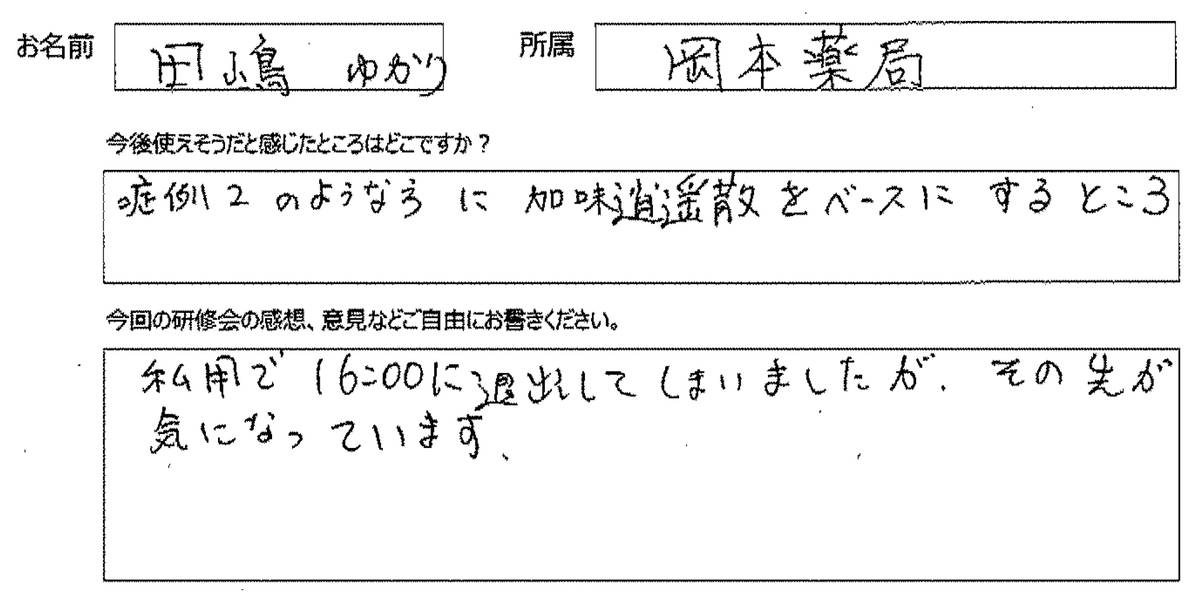 お名前 田嶋 ゆかり 所属 岡本薬局
今後使えそうだと感じたところはどこですか？
症例2のような方に 加味逍遥散をベースにするところ
今回の研修会の感想、意見などご自由にお書きください。
私用で16:00に退出してしまいましたが、その先が
気になっています、